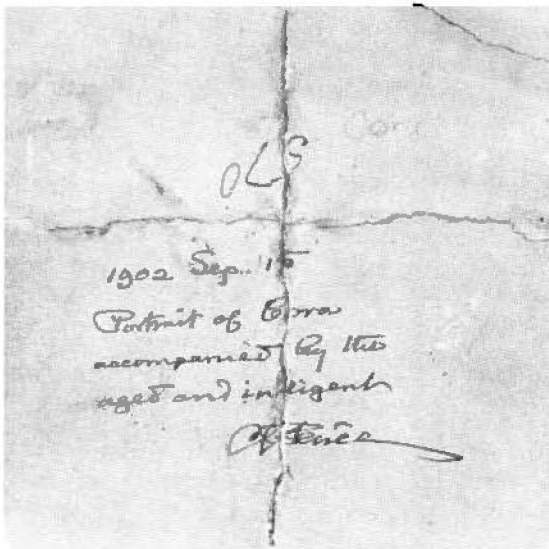 Cora
OLS
1902 Sep. 15
Portrait of Cora
accompanied by the
aged and indigent